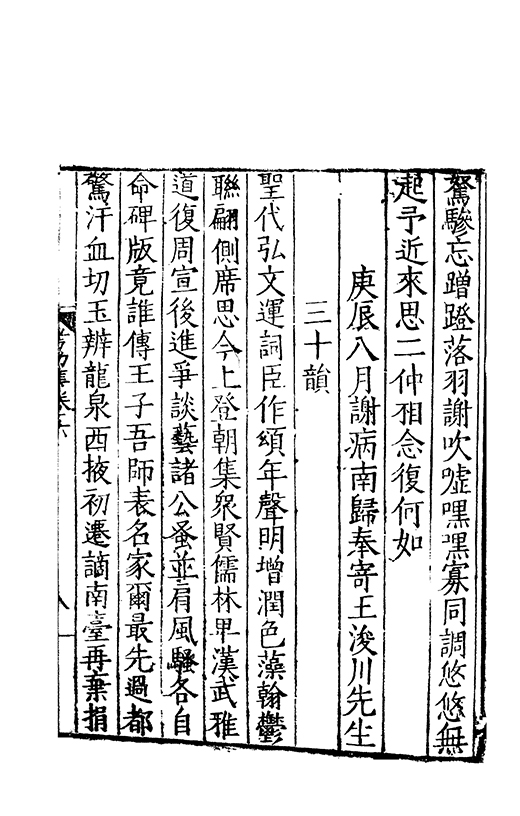 駑驂忘蹭蹬落羽謝吹噓嘿嘿寡同調悠悠無
起予近來思二仲相念復何如
庚辰八月謝病南歸奉寄王浚川先生
三十韻
聖代弘文運詞臣作頌年聲明增潤色藻翰鬱
聯翩側席思今上登朝集衆賢儒林卑漢武雅
道復周宣後進爭談藝諸公蚤並肩風騷各自
命碑版竟誰傳王子吾師表名家爾最先過都
驚汗血切玉辨龍泉西掖初遷謫南臺再棄捐